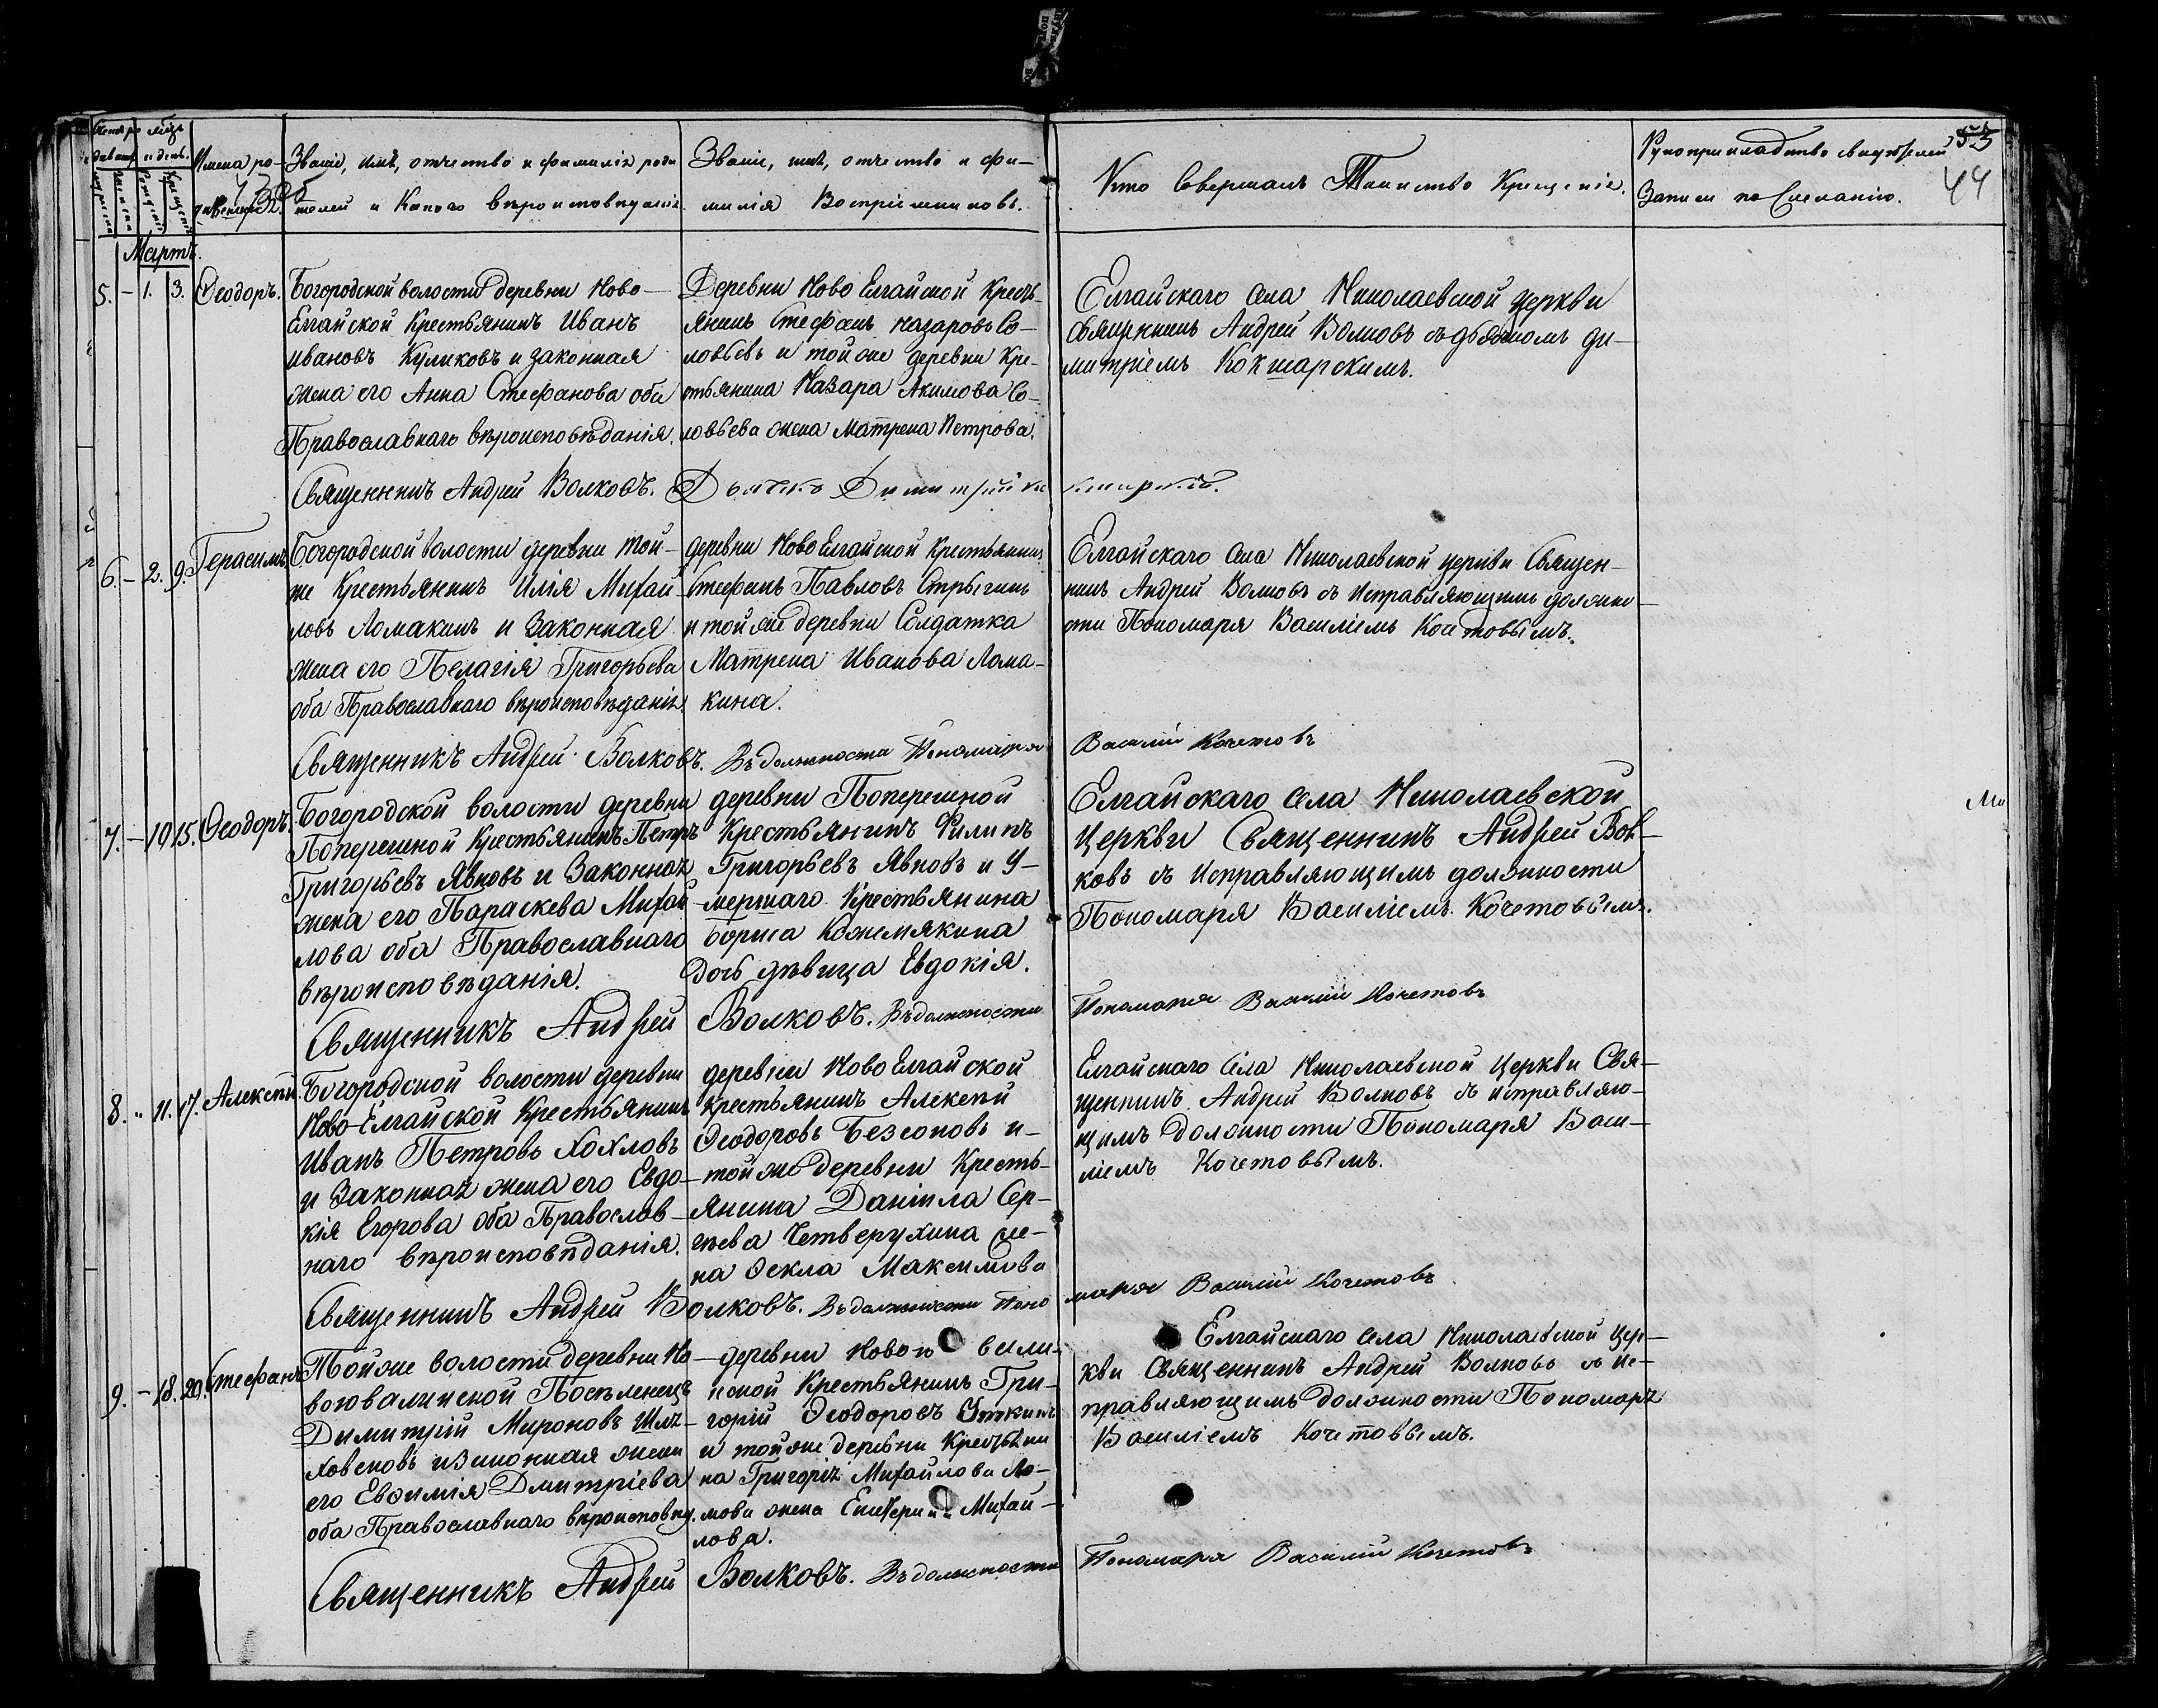 Счетъ родившихся
Мѣсяцъ и день.
Имена родившихся.
Званіе, имя, отчество и фамилія роди-
телей и Какого вѣроисповѣданія.
Званіе, имя, отчество и фа-
милія Воспріемниковъ.
Кто Совершалъ Таинство Крещенія.
Рукоприкладство свидѣтелей
Записи по Желанію.
53
44
Мартъ.
5. – 1. 3. Ѳеодоръ.
Богородской волости деревни Ново-
Елгайской Крестьянинъ Иванъ
Ивановъ Куликовъ и законная
жена его Анна Стефанова оба
Православнаго вѣроисповѣданія.
Деревни Ново Елгайской Кресть-
янинъ Стефанъ Назаровъ Со-
ловьевъ и той же деревни Кре-
стьянина Назара Акимова Со-
ловьева жена Матрена Петрова.
Елгайскаго села Николаевской церкви
Священникъ Андрей Волковъ съ дьячкомъ Ди-
митріемъ Кокшарскимъ.
Священникъ Андрей Волковъ. Дьячекъ Димитрій Кокшарскій.
6. – 2. 9. Герасимъ.
Богородской волости деревни той-
же Крестьянинъ Илія Михай-
ловъ Ломакинъ и Законная
жена его Пелагія Григорьева
оба Православнаго вѣроисповѣданія.
деревни Ново Елгайской Крестьянинъ
Стефанъ Павловъ Стрыгинъ
и той же деревни Солдатка
Матрена Иванова Лома-
кина.
Елгайскаго села Николаевской церкви Священ-
никъ Андрей Волковъ съ Исправляющимъ должно-
сти Пономаря Василіемъ Кочетовымъ.
Священникъ Андрей Волковъ. Въ должности Пономаря Василій Кочетовъ
7. – 10 15. Ѳеодоръ.
Богородской волости деревни
Поперешной Крестьянинъ Петръ
Григорьевъ Явновъ и Законная
жена его Параскева Михай-
лова оба Православнаго
вѣроисповѣданія.
деревни Поперешной
Крестьянинъ Филипъ
Григорьевъ Явновъ и У-
мершаго Крестьянина
Бориса Кожемякина
дочь дѣвица Евдокія.
Елгайскаго села Николаевской
Церкви Священникъ Андрей Вол-
ковъ съ Исправляющимъ должности
Пономаря Василіемъ Кочетовымъ.
Священникъ Андрей Волковъ. Въ должности Пономаря Василій Кочетовъ
8. " 11. 17. Алексѣй.
Богородской волости деревни
Ново-Елгайской Крестьянинъ
Иванъ Петровъ Хохловъ
и Законная жена его Евдо-
кія Егорова оба Православ-
наго вѣроисповѣданія.
деревни Ново Елгайской
крестьянинъ Алексѣй
Ѳеодоровъ Безсоновъ и-
той же деревни Кресть-
янина Даніила Сер-
гѣева Четверухина же-
на Ѳекла Максимова
Елгайскаго села Николаевской Церкви Свя-
щенникъ Андрей Волковъ съ исправляю-
щимъ должности Пономаря Васи-
ліемъ Кочетовымъ.
Священникъ Андрей Волковъ. Въ должности Пономаря Василій Кочетовъ
9. – 18. 20. Стефанъ
Той же волости деревни Но-
воювалинской Поселенецъ
Димитрій Мироновъ
и законная жена
его Евѳимія Дмитріева
оба Православнаго вѣроисповѣд.
деревни Новою вали-
нской Крестьянинъ Гри-
горій Ѳеодоровъ Уткинъ
и той же деревни Крестьяни
на Григорія Михайлова Ло-
мова жена Екатерина Михай-
лова.
Елгайскаго села Николаевской Цер-
кви Священникъ Андрей Волковъ съ Ис-
правляющимъ должности Пономаря
Василіемъ Кочетовымъ.
Священникъ Андрей Волковъ. Въ должности Пономаря Василій Кочетовъ